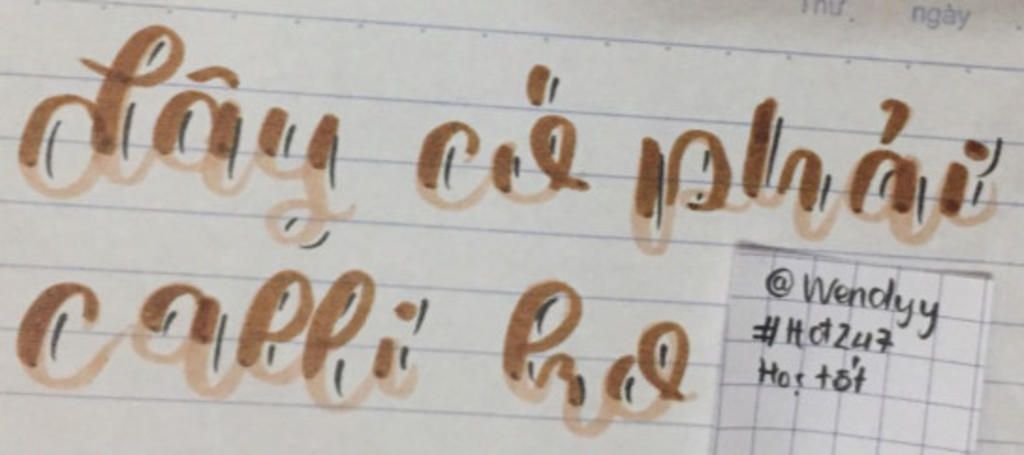 Thứ ngày
đây có phải
calli ko
@Wendyy
#Họt247
Học tốt